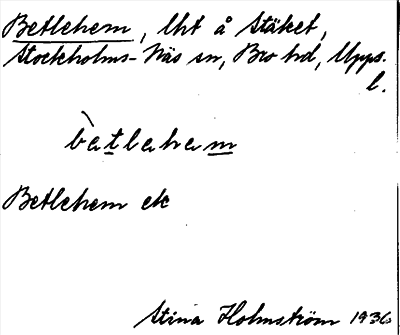 Betlehem, lht å Stäket,
Stockholms-Näs sn, Bro hd, Upps.
l.
bètlehem
Betlehem ek
Stina Holmström 1936